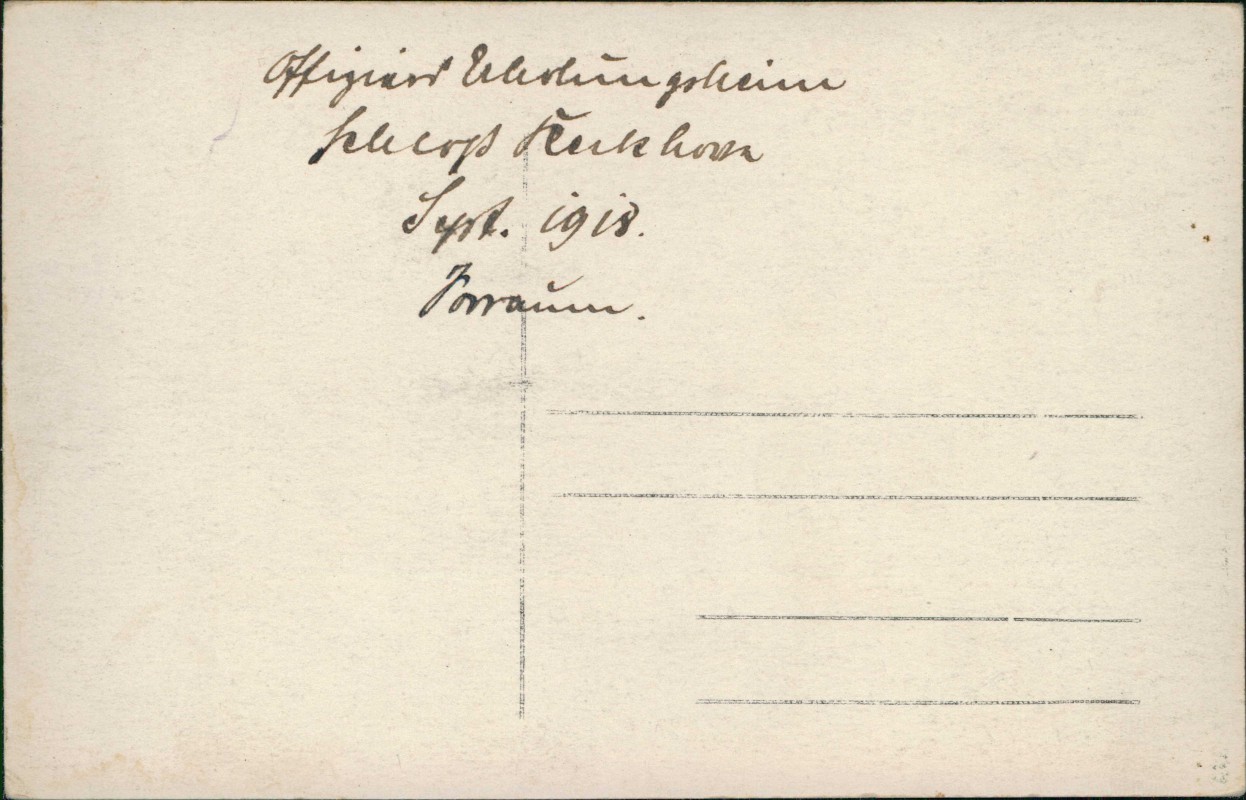 Offiziers Erholungsheim
Schloß Kerkhove
Sept. 1918.
Vorraum.